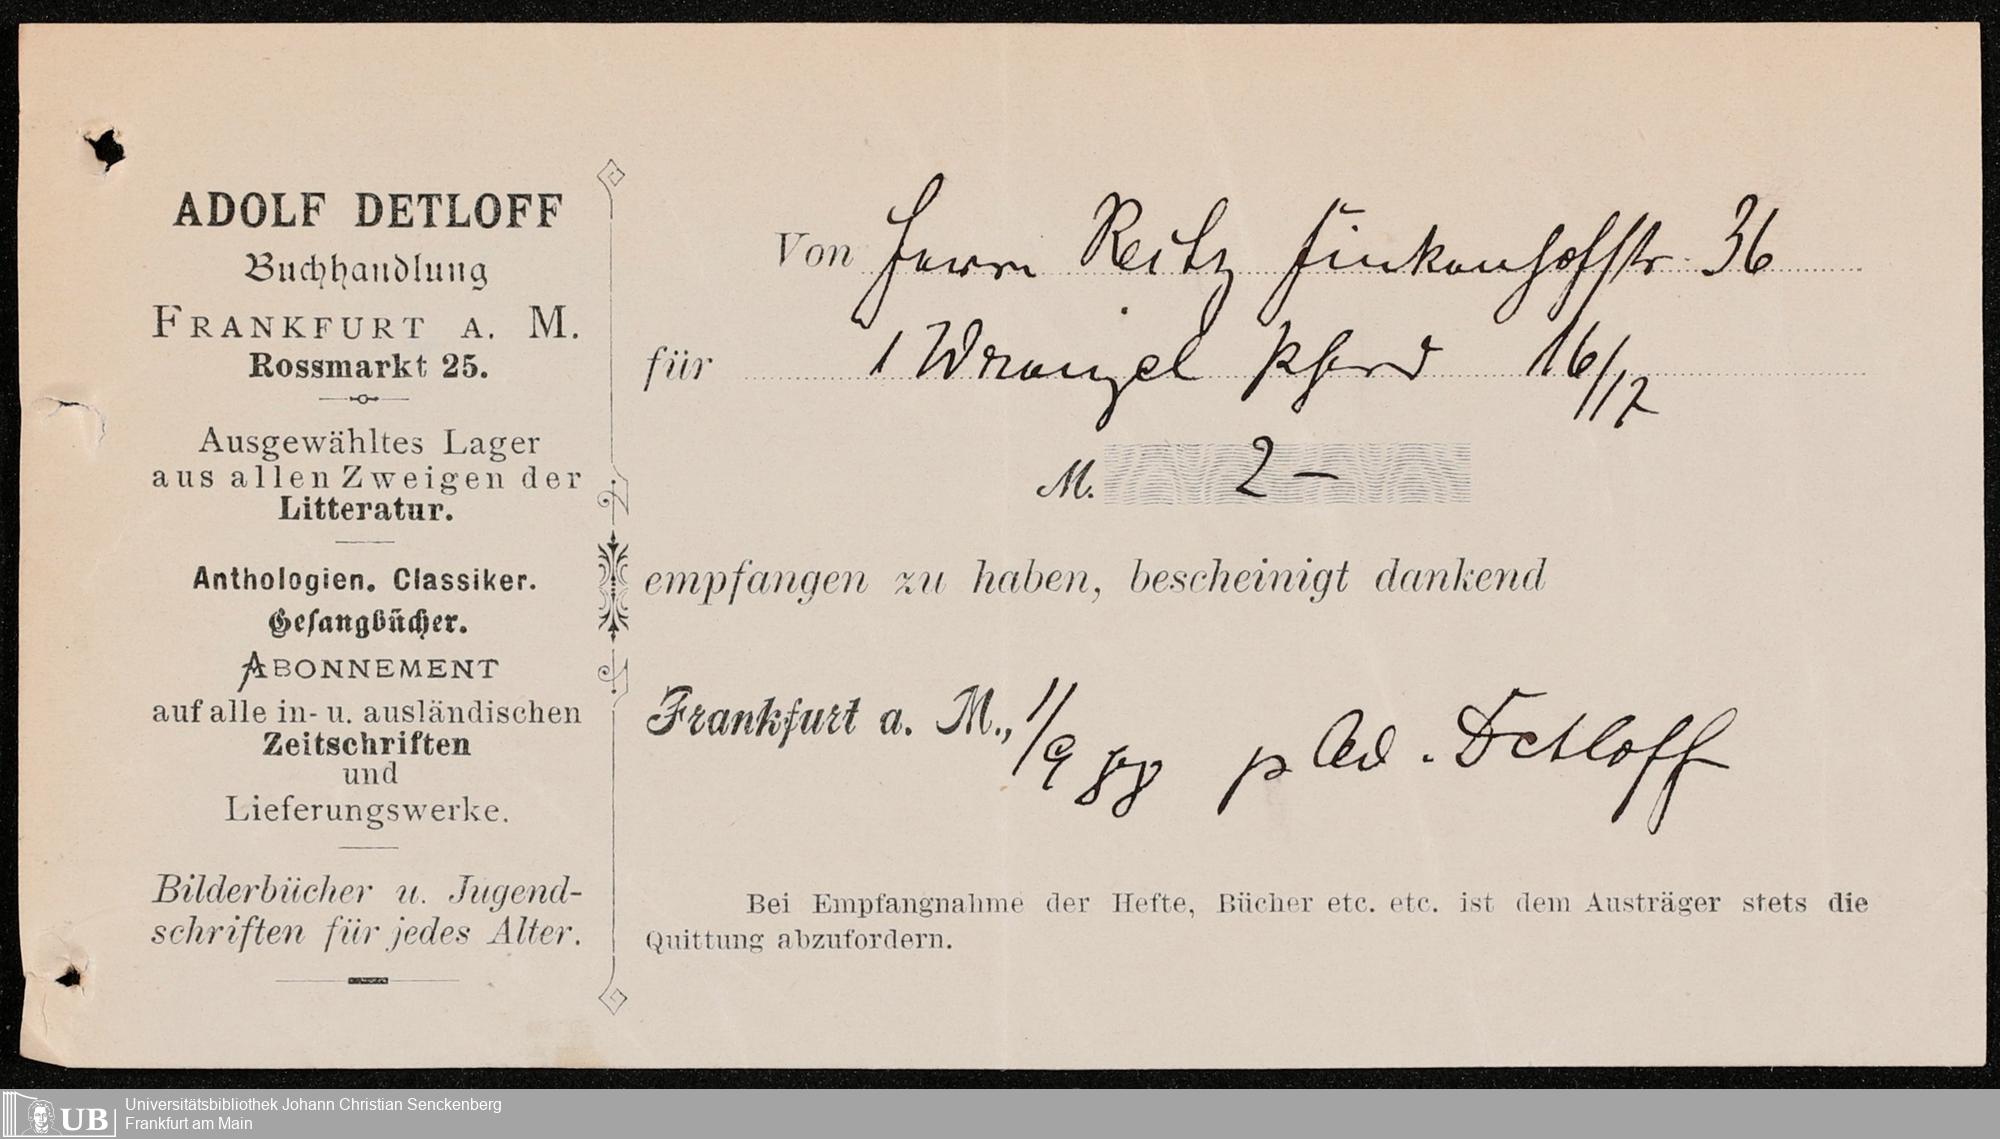 ADOLF DETLOFF
Buchhandlung
FRANKFURT A. M.
Rossmarkt 25.
Ausgewähltes Lager
aus allen Zweigen der
Litteratur.
Anthologien. Classiker.
Gesangbücher.
ABONNEMENT
auf alle in- u. ausländischen
Zeitschriften
und
Lieferungswerke.
Bilderbücher u. Jugend-
schriften für jedes Alter.
Von Herrn Reitz Finkenhofstr. 36
für 1 Wrangel Pferd 16/17
M. 2 —
empfangen zu haben, bescheinigt dankend
Frankfurt a. M., 1/9 88 p Ad. Detloff
Bei Empfangnahme der Hefte, Bücher etc. etc. ist dem Austräger stets die
Quittung abzufordern.
UB
Universitätsbibliothek Johann Christian Senckenberg
Frankfurt am Main